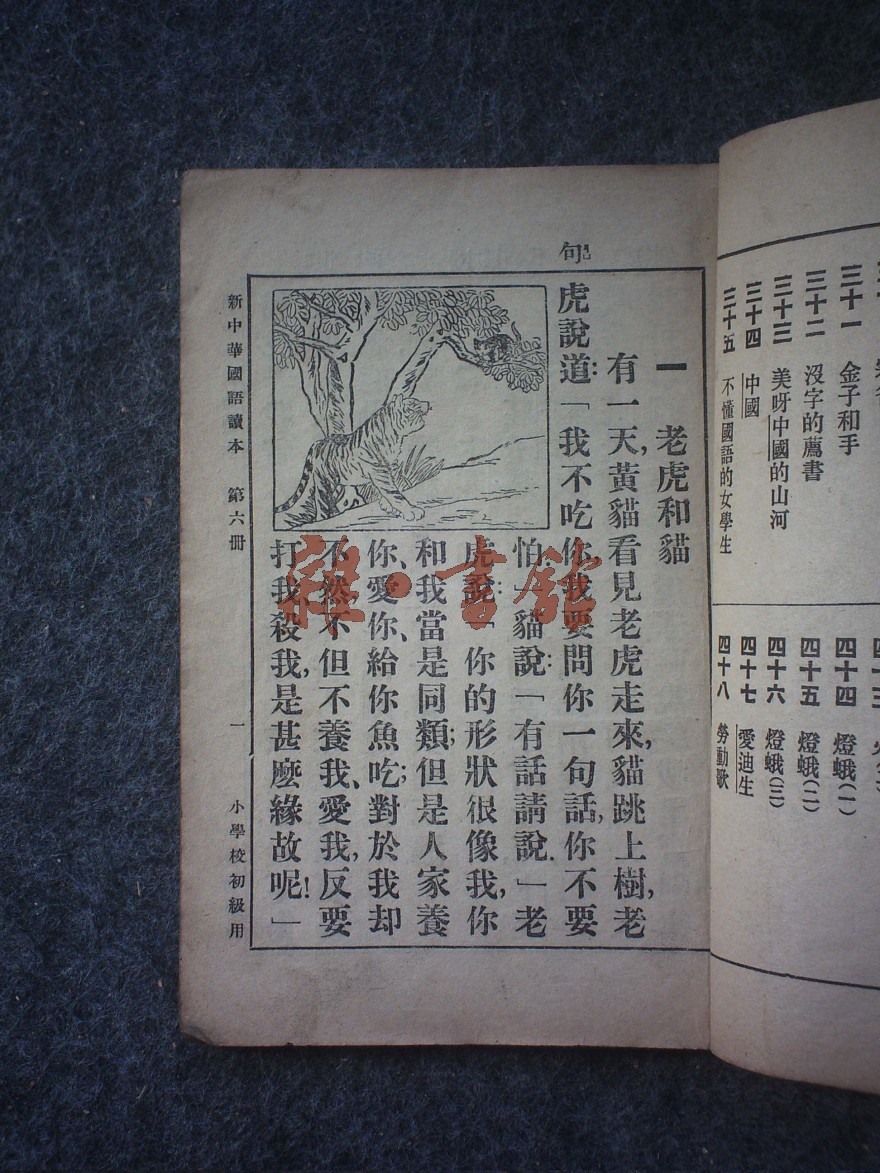 三十一 金子和手
三十二 沒字的薦書
三十三 美呀中國的山河
三十四 中國
三十五 不懂國語的女學生
四十四 燈蛾(一)
四十五 燈蛾(二)
四十六 燈蛾(三)
四十七 愛迪生
四十八 勞動歌
句
一 老虎和貓
有一天,黃貓看見老虎走來,貓跳上樹,老
虎說道:「我不吃你,我要問你一句話,你不要
怕.」貓說:「有話請說.」老
虎說:「你的形狀很像我,你
和我當是同類;但是人家養
你、愛你、給你魚吃;對於我却
不然,不但不養我、愛我,反要
打我殺我,是甚麼緣故呢!」
新中華國語讀本 第六冊 一 小學校初級用
雜·書館